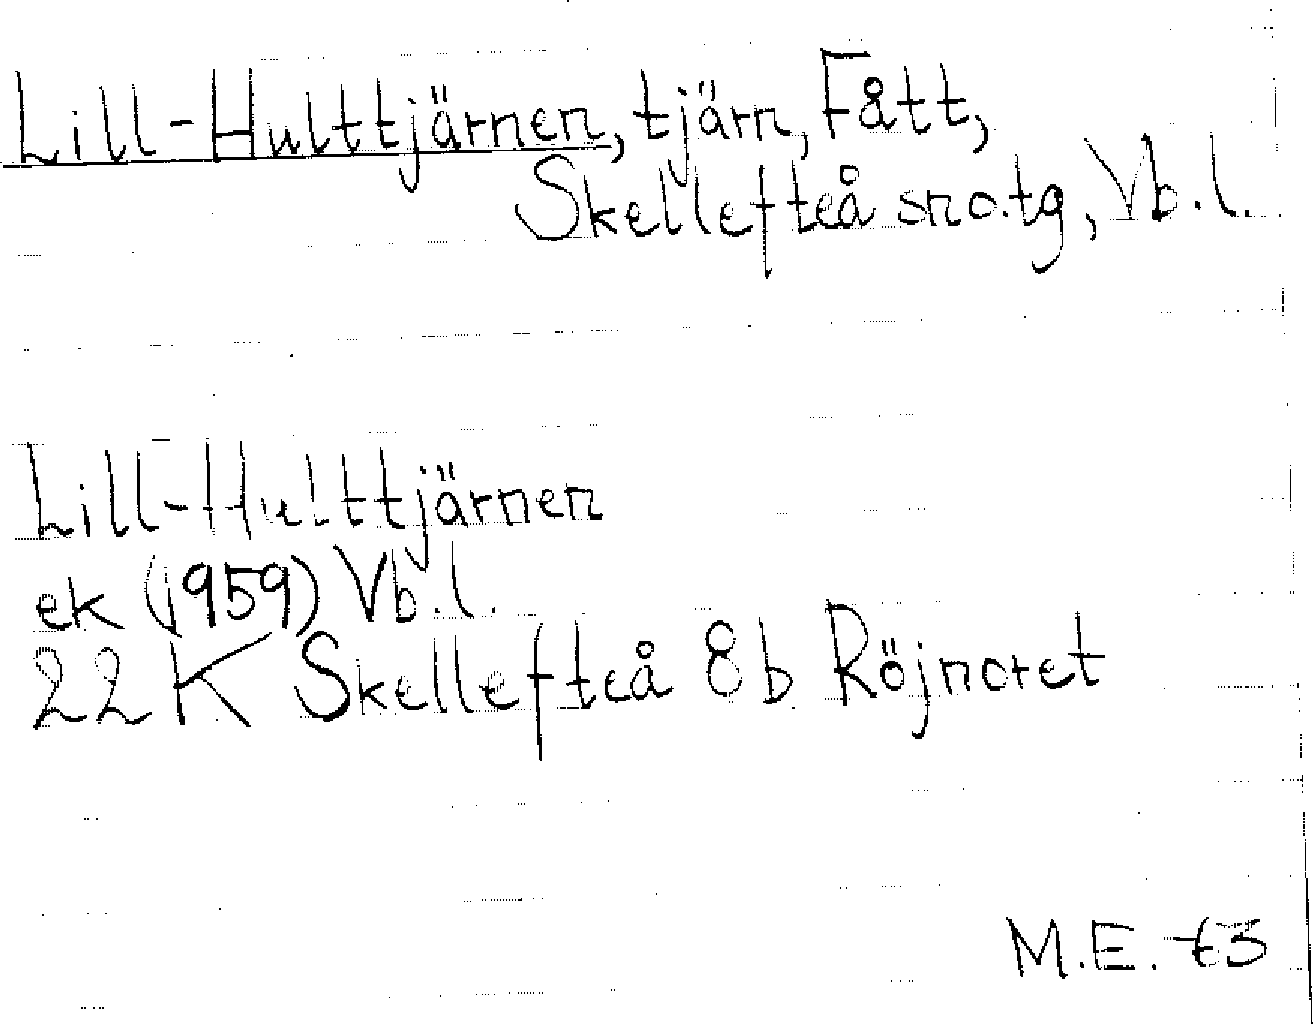 Lill-Hulttjärnen, tjärn, Fått,
Skellefteå sn o. tg, Vb. l.
Lill-Hulttjärnen
ek (1959) Vb. l.
22 K Skellefteå 8b Röjnoret
M.E.